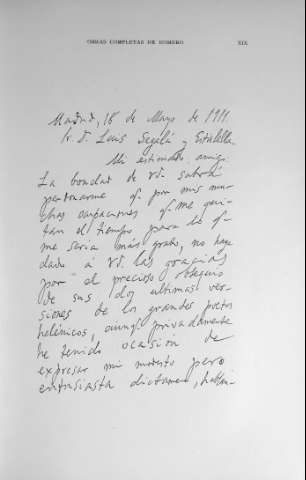 OBRAS COMPLETAS DE HOMERO XIX
Madrid, 18 de Mayo de 1911.
Sr. D. Luis Segalá y Estalella.
Mi estimado amigo:
La bondad de Vd. sabrá
perdonarme q. por mis mu-
chas ocupaciones q. me qui-
tan el tiempo para lo q.
me seria más grato, no haya
dado á Vd. las gracias
por el precioso obsequio
de sus dos ultimas ver-
siones de los grandes poetas
helénicos, aunq. privadamente
he tenido ocasión de
expresar mi modesto pero
entusiasta dictamen, hallán-